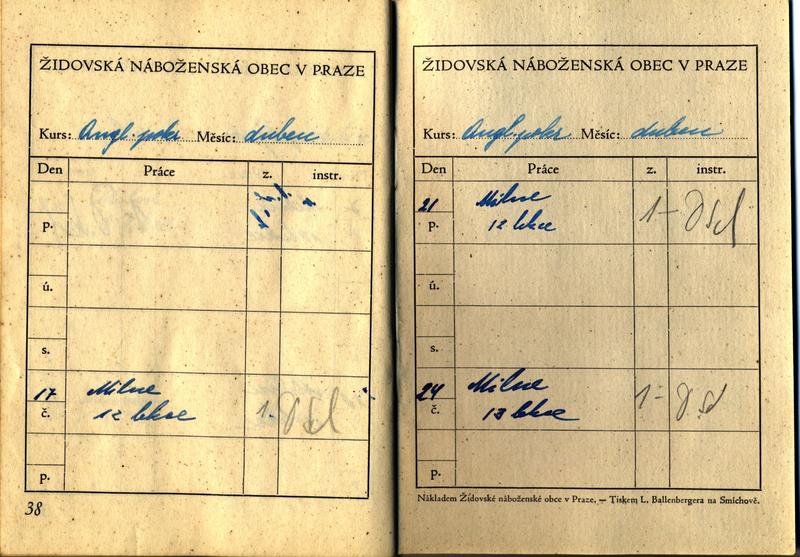 ŽIDOVSKÁ NÁBOŽENSKÁ OBEC V PRAZE
Kurs: Angl. pokr Měsíc: duben
Den Práce z. instr.
P.
ú.
s.
17 Milne
č. 12 lekce 1-
P.
38
ŽIDOVSKÁ NÁBOŽENSKÁ OBEC V PRAZE
Kurs: Angl. pokr Měsíc: duben
Den Práce z. instr.
21 Milne
P. 12 lekce 1-
ú.
s.
24 Milne
č. 13 lekce 1-
P.
Nákladem Židovské náboženské obce v Praze. — Tiskem L. Ballenbergera na Smíchově.